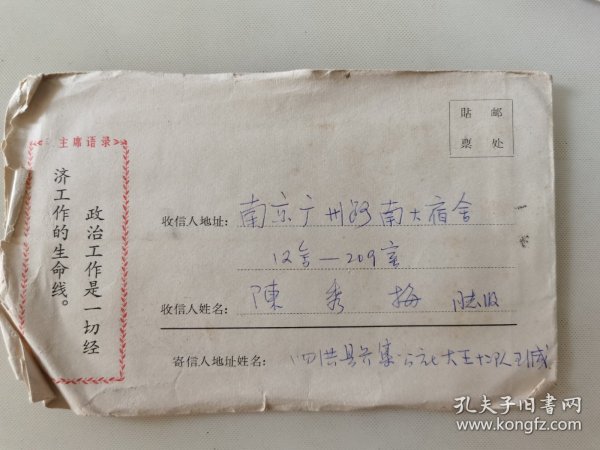 主席语录
政治工作是一切经
济工作的生命线。
貼 邮
票 处
收信人地址：南京广州路南大宿舍
12舍—209室
收信人姓名：陳秀梅
寄信人地址姓名：泗洪县
孔夫子旧书网
www.kongfz.com